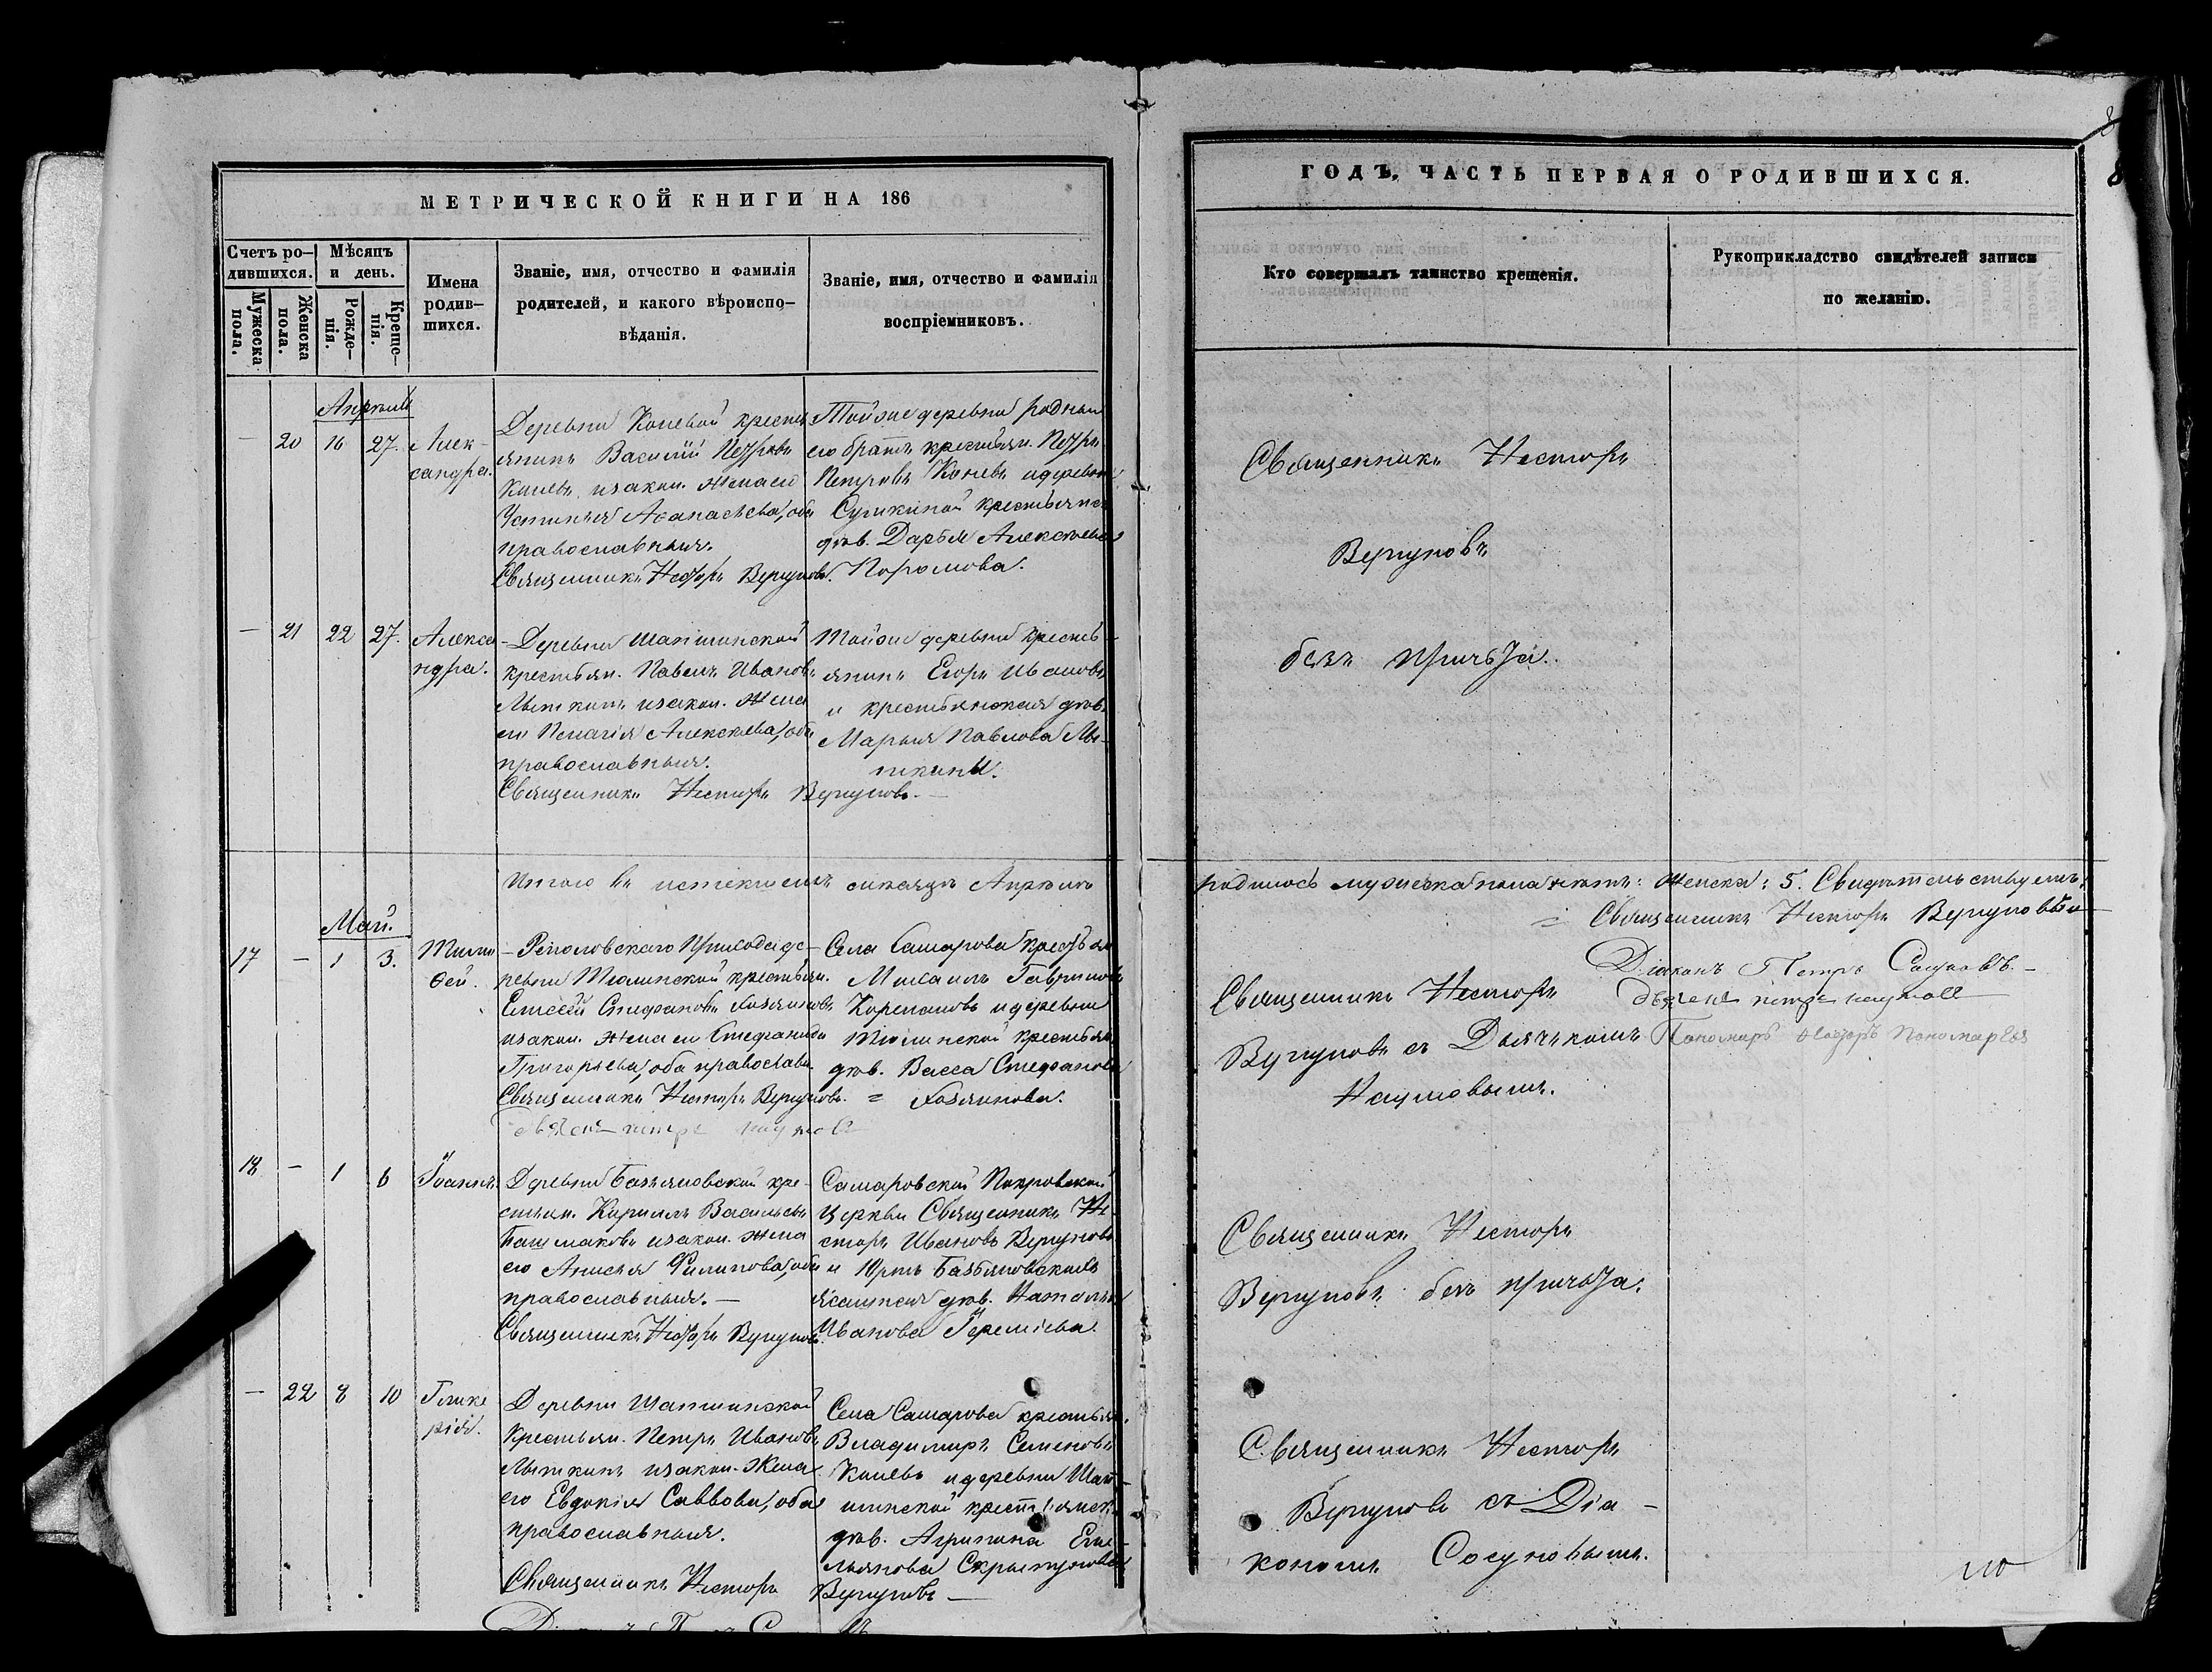 МЕТРИЧЕСКОЙ КНИГИ НА 186
Счетъ ро-
дившихся.
Мѣсяцъ
и день.
Мужеска
пола.
Женска
пола.
Рожде-
нія.
Креще-
нія.
Имена
родив-
шихся.
Званіе, имя, отчество и фамилія
родителей, и какого вѣроиспо-
вѣданія.
Званіе, имя, отчество и фамилія
воспріемниковъ.
Апрѣль
— 20 16 27.
Алек-
сандра.
Деревни Коневой кресть-
янинъ Василій Петровъ
Коневъ и закон. жена его
Устинья Аѳанасьева, оба
православныя.
Священникъ Несторъ Вергуновъ.
Той же деревни родный
его братъ крестьян. Петръ
Петровъ Коневъ и деревни
крестьянск.
дѣв. Дарья Алексѣева
— 21 22 27.
Алекса-
ндра.
Деревни Шапшинской
крестьян. Павелъ Ивановъ
Лыткинъ и закон. жена
его Пелагія Алексѣева, оба
православныя.
Священникъ Несторъ Вергуновъ. —
Той же деревни кресть-
янинъ Егоръ Ивановъ
и крестьянская дѣв.
Марья Павлова Лы-
ткины.
Итого въ истекшемъ мѣсяцѣ Апрѣлѣ
Май.
17 — 1 3.
Тимо
ѳей.
Реполовскаго прихода де-
ревни Тюлинской крестьян.
Елисей Стефановъ Хозяиновъ
и закон. жена его Стефанида
Григорьева, оба православн.
Священникъ Несторъ Вергуновъ. =
Села Самарова крестьян
Михаилъ Гавриловъ
Корепановъ и деревни
Тюлинской крестьян.
дѣв. Васса Стефанова
Хозяинова.
18 — 1 6
Іоаннъ.
Деревни Базьяновской кре-
стьян. Кириллъ Васильевъ
Башмаковъ и закон. жена
его Анисья Филипова, оба
православныя. —
Священникъ Несторъ Вергуновъ.
Самаровской Покровской
Церкви Священникъ Не-
сторъ Ивановъ Вергуновъ
и Юртъ Базьяновскихъ
ясашная дѣв. Наталья
Иванова Іереміева.
— 22 8 10
Глике
рія.
Деревни Шапшинской
Крестьян. Петръ Ивановъ
Лыткинъ и закон. жена
его Евдокія Саввова, оба
православныя.
Священникъ Несторъ Вергуновъ —
Села Самарова крестьян.
Владимиръ Семеновъ
Коневъ и деревни Шап-
шинской крестьянск.
дѣв. Агрипина Еме-
льянова Скрыпунова
ГОДЪ, ЧАСТЬ ПЕРВАЯ О РОДИВШИХСЯ.
Кто совершалъ таинство крещенія.
Рукоприкладство свидѣтелей записи
по желанію.
Священникъ Несторъ
Вергуновъ
безъ причта.
родилось мужеска пола нѣтъ: женска: 5. Свидѣтельствуемъ:
= Священникъ Несторъ Вергуновъ
Діаконъ Петръ Сосуновъ. —
Дьячекъ Петръ Наумовъ
Пономарь Пономаревъ
Священникъ Несторъ
Вергуновъ съ Дьячкомъ
Наумовымъ.
Священникъ Несторъ
Вергуновъ безъ причта.
Священникъ Несторъ
Вергуновъ съ Діа-
кономъ Сосуновымъ.